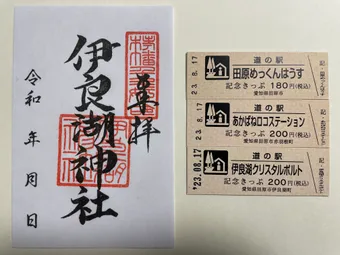 奉拝
伊良湖神社
令和 年 月 日
道の駅
田原めっくんはうす
記念きっぷ 180円(税込)
愛知県田原市
23.8.17
道の駅
あかばねロコステーション
記念きっぷ 200円(税込)
愛知県田原市赤羽根町
23.8.17
道の駅
伊良湖クリスタルポルト
記念きっぷ 200円(税込)
愛知県田原市伊良湖町
'23.08.17